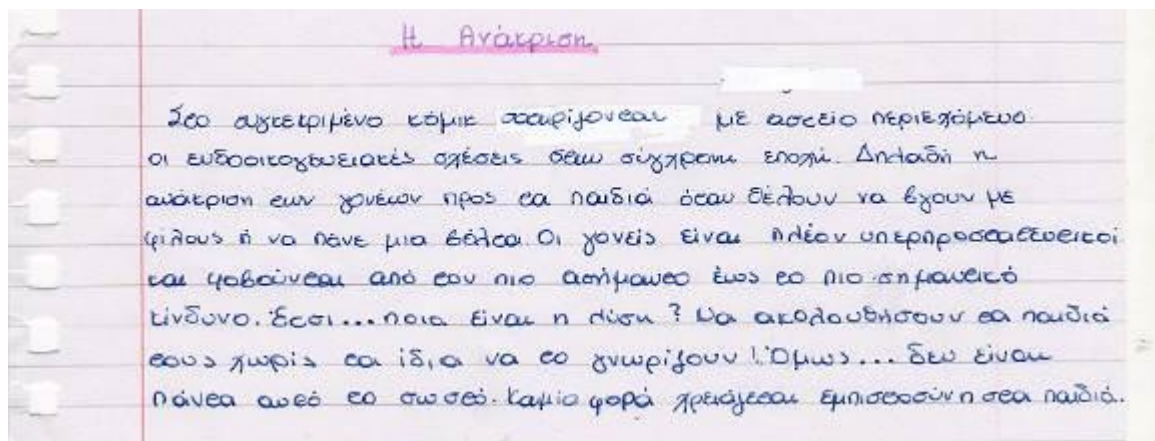 Η Ανάκριση
Στο συγκεκριμένο κόμικ σατιρίζονται με αστείο περιεχόμενο
οι ενδοοικογενειακές σχέσεις στην σύγχρονη εποχή. Δηλαδή η
ανάκριση των γονέων προς τα παιδιά όταν θέλουν να βγουν με
φίλους ή να πάνε μια βόλτα. Οι γονείς είναι πλέον υπερπροστατευτικοί
και φοβούνται από τον πιο ασήμαντο έως το πιο σημαντικό
κίνδυνο. Έτσι... ποια είναι η λύση ? Να ακολουθήσουν τα παιδιά
τους χωρίς τα ίδια να το γνωρίζουν ! Όμως... δεν είναι
πάντα αυτό το σωστό. Καμία φορά χρειάζεται εμπιστοσύνη στα παιδιά.